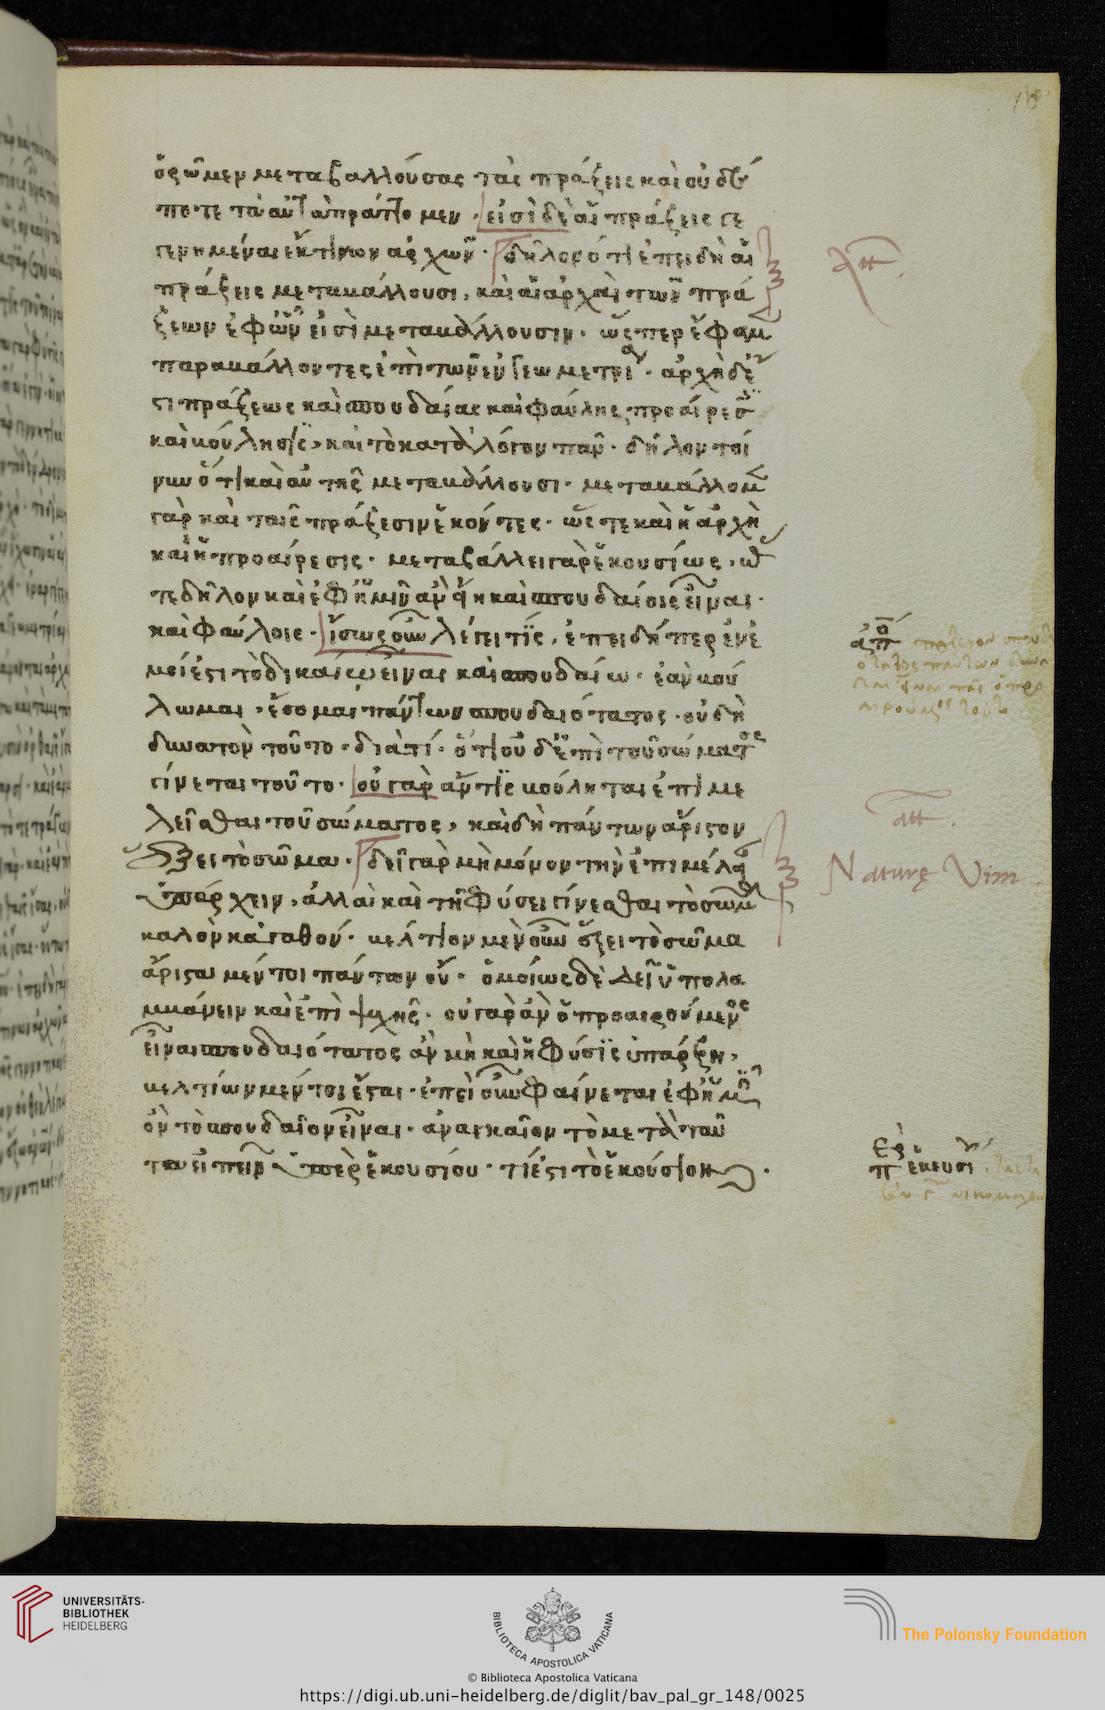 ὁρῶμεν μεταβαλλούσας τὰς πράξεις καὶ οὐδέ
ποτε ταὐτὰ πράττομεν · εἰσὶ δὲ αἱ πράξεις γε
γενημέναι ἔκ τινων ἀρχῶν · δῆλον ὅτι ἐπειδὴ αἱ
πράξεις μεταβάλλουσι, καὶ αἱ ἀρχαὶ τῶν πρά
ξεων ἐφ' ὧν εἰσὶ μεταβάλλουσιν · ὥσπερ ἔφαμεν
παραβάλλοντες ἐπὶ τῶν ἐν γεωμετρία · ἀρχὴ δέ
ἐστι πράξεως καὶ σπουδαίας καὶ φαύλης προαίρεσις
καὶ βούλησις, καὶ τὸ κατὰ λόγον πᾶν · δῆλον τοί
νυν ὅτι καὶ αὗται μεταβάλλουσι · μεταβάλλομεν
γὰρ καὶ ταῖς πράξεσιν ἑκόντες · ὥστε καὶ ἡ ἀρχὴ
καὶ ἡ προαίρεσις · μεταβάλλει γὰρ ἑκουσίως · ὥς
τε δῆλον καὶ ἐφ' ἡμῖν ἂν εἴη καὶ σπουδαίοις εἶναι ·
καὶ φαύλοις · ἴσως οὖν λέγει τίς, ἐπειδήπερ ἐν ἐ
μοί ἐστι τὸ δικαίῳ εἶναι καὶ σπουδαίῳ · ἐὰν βού
λωμαι · ἔσομαι πάντων σπουδαιότατος · οὐ δὴ
δυνατὸν τοῦτο · διὰ τί · ὅτι οὐδ' ἐπὶ τοῦ σώματος
γίνεται τοῦτο · οὐ γὰρ ἄν τις βούληται ἐπιμε
λεῖσθαι τοῦ σώματος, καὶ δὴ πάντων ἄριστον
ἕξει τὸ σῶμα · δεῖ γὰρ μὴ μόνον τὴν ἐπιμέλειαν
ὑπάρχειν, ἀλλὰ καὶ τῇ φύσει γίνεσθαι τὸ σῶμα
καλὸν κἀγαθόν · βέλτιον μὲν οὖν ἕξει τὸ σῶμα
ἄριστα μέντοι πάντων οὔ · ὁμοίως δὲ δεῖ ὑπολα
μβάνειν καὶ ἐπὶ ψυχῆς · οὐ γὰρ ἂν ὁ προαιρούμενος
εἶναι σπουδαιότατος ἂν μὴ καὶ ἡ φύσις ὑπάρξη,
βελτίων μέντοι ἔσται · ἐπεὶ οὖν φαίνεται ἐφ' ἡμῖν
ὂν τὸ σπουδαῖον εἶναι · ἀναγκαῖον τὸ μετὰ ταῦ
τα εἰπεῖν ὑπὲρ ἑκουσίου · τί ἐστι τὸ ἑκούσιον
att.
Naturę Vim
att.
UNIVERSITÄTS-
BIBLIOTHEK
HEIDELBERG
BIBLIOTECA APOSTOLICA VATICANA
The Polonsky Foundation
© Biblioteca Apostolica Vaticana
https://digi.ub.uni-heidelberg.de/diglit/bav_pal_gr_148/0025